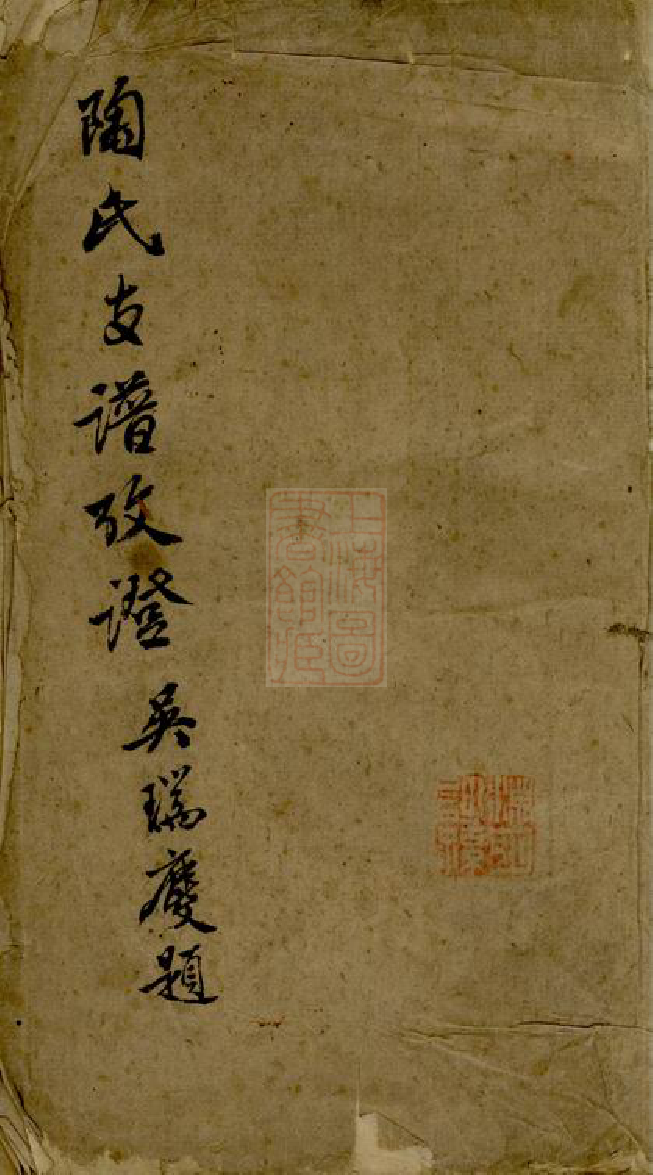 陶氏支譜攷證
吳瑞慶題
上海圖書館姬